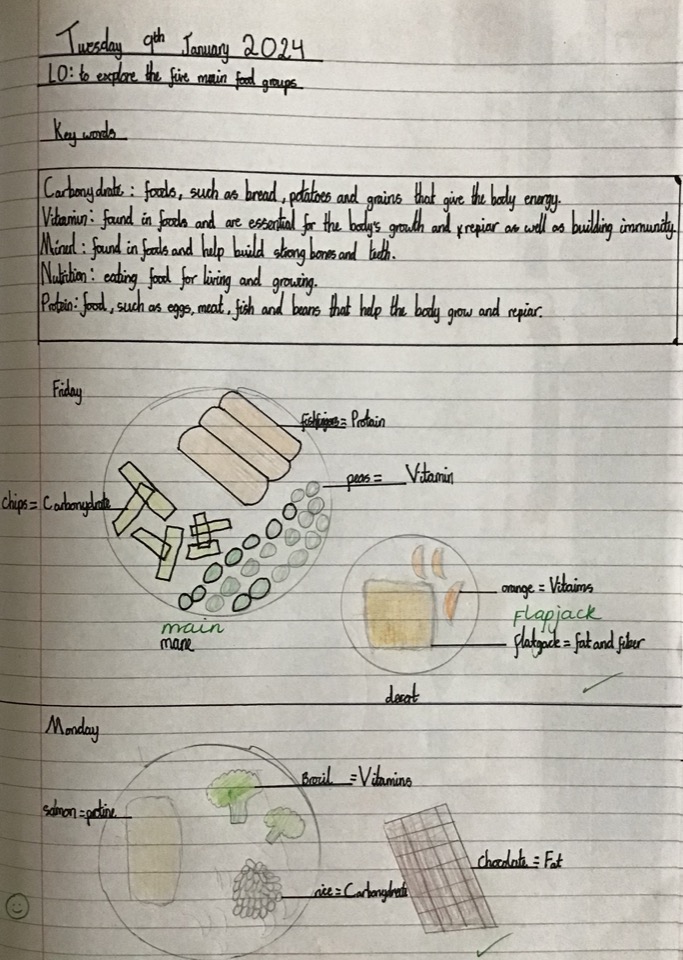 Tuesday 9th January 2024
LO: to explore the five main food groups.
Key words
Carbohydrate: foods, such as bread, potatoes and grains that give the body energy.
Vitamin: found in foods and are essential for the body's growth and repiar as well as building immunity.
Mineral: found in foods and help build strong bones and teeth.
Nutrition: eating food for living and growing.
Protein: food, such as eggs, meat, fish and beans that help the body grow and repiar.
Friday
= Protein
peas = Vitamin
chips = Carbohydrate
orange = Vitaims
Flapjack
flatgack = fat and fiber
main
mane
desrt
Monday
= Vitamins
salmon = protine
chocolate = Fat
rice = Carbohydrate